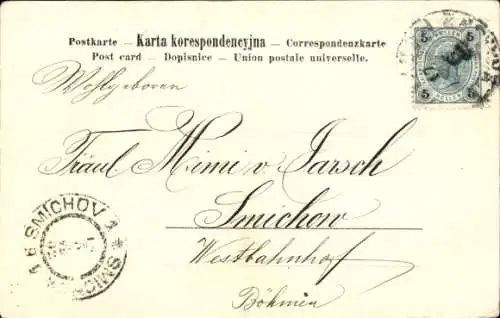 Postkarte – Karta korespondencyjna – Correspondenzkarte
Post card – Dopisnice – Union postale universelle.
Wohlgeboren
Fräul. Mimi v. Jarsch
Smichow
Westbahnhof
Böhmen
5 5
5 HELLER 5
SMICHOV 1
SMICHOV